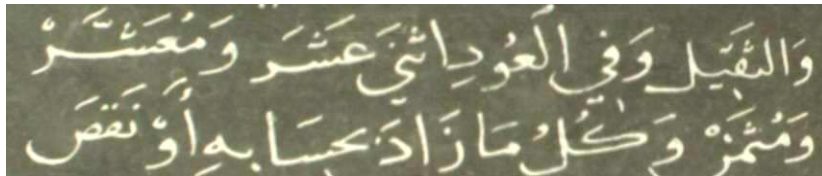 وَالثَّقِيل وَفِي الْعُودِ اثْنَيْ عَشَرَ وَمُعَشَّرْ
وَمُثَمَّنْ وَكُلُّ مَا زَادَ بِحِسَابِهِ أَوْ نَقَصَ